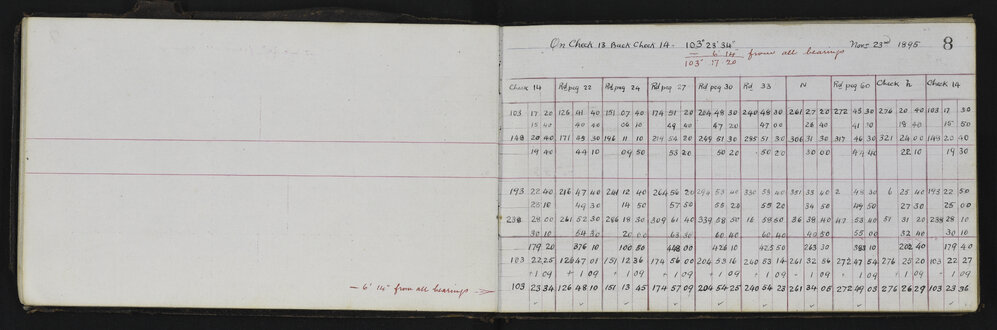 On Check 13 Back Check 14. 103° 23' 34" Novr 23rd 1895 8
— 6' 14" from all bearings
103° 17 20
Check 14 Rd peg 22 Rd peg 24 Rd peg 27 Rd peg 30 Rd 33 N Rd peg 60 Check h Check 14
103 17 20 126 41 40 151 07 40 174 51 20 204 48 30 240 48 30 261 27 20 272 45 30 276 20 40 103 17 30
15 40 40 40 06 10 49 40 47 20 47 00 26 40 41 10 19 40 15 50
148 20 40 171 45 30 196 11 10 219 54 20 249 51 30 285 51 30 306 31 30 317 46 30 321 24 00 148 20 40
19 40 44 10 09 50 53 20 50 20 50 20 30 00 44 40 22 10 19 30
193 22 40 216 47 40 241 12 40 264 56 20 294 53 40 330 53 40 351 33 40 2 48 30 6 25 40 193 22 50
25 10 49 30 14 50 57 50 55 20 55 20 34 50 49 50 27 30 25 00
238 28 00 261 52 30 286 18 30 309 61 40 339 58 50 16 58 50 36 38 40 47 53 40 51 31 20 238 28 10
30 10 54 30 20 00 63 30 60 40 60 40 40 50 55 00 32 40 30 10
179 20 376 10 100 50 448 00 426 10 425 50 263 30 383 10 202 40 179 40
103 22 25 126 47 01 151 12 36 174 56 00 204 53 16 240 53 14 261 32 56 272 47 54 276 25 20 103 22 27
+ 1 09 + 1 09 + 1 09 + 1 09 + 1 09 + 1 09 1 09 1 09 1 09 1 09
— 6' 14" from all bearings 103 23 34 126 48 10 151 13 45 174 57 09 204 54 25 240 54 23 261 34 05 272 49 03 276 26 29 103 23 36